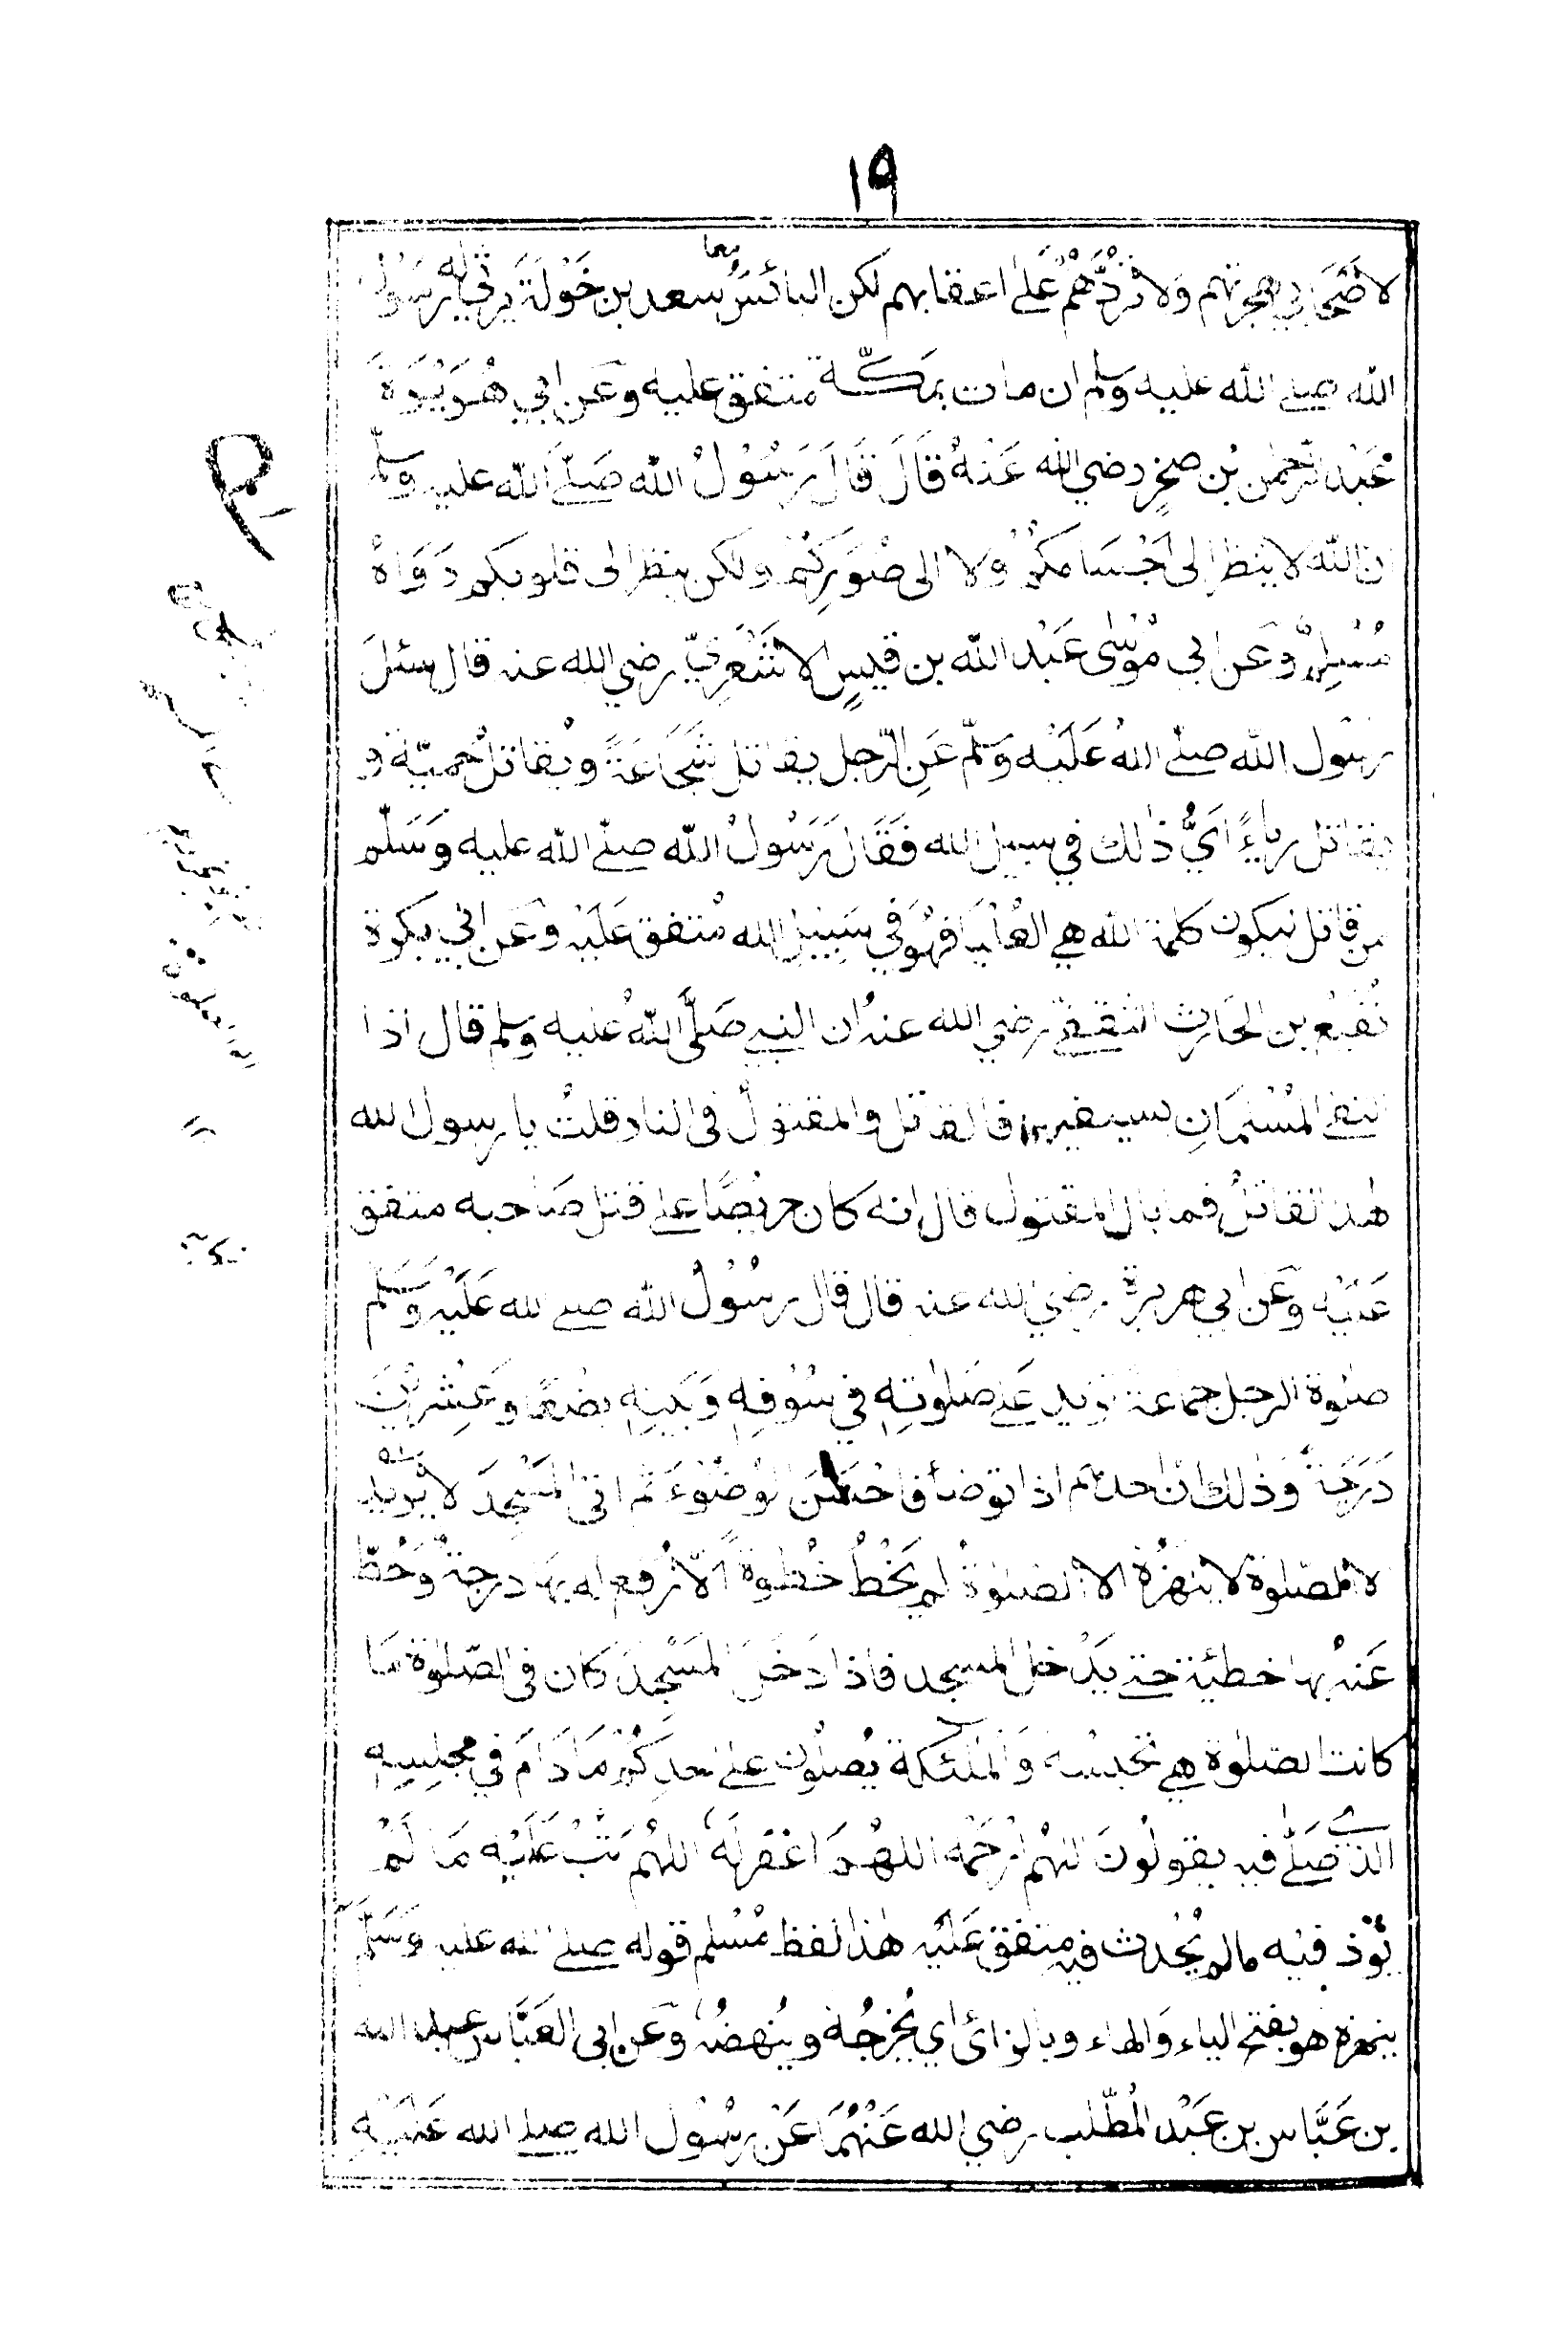 ١٩
لاصحابي هجرتهم وَلا تَرُدَّهُمْ عَلٰى اعقابهم لكن البائسُ سعد بن خَوْلَةَ يرثي له رَسُولُ
الله صلے الله عليه وسلم ان مات بمكّة متفق عليه وعَن ابي هُرَيْرَةَ
عَبْد الرّحمٰن بْن صخرٍ رضي الله عَنْهُ قَالَ قَالَ رَسُوْلُ الله صَلَّے الله عليه وسلّم
ان الله لا ينظر الى اَجْسَامكُمْ وَلا الى صُوَرِكُمْ ولكن ينظر الى قلوبكم رَوَاهُ
مُسْلِمٌ وَعَن ابي مُوْسٰى عَبْد الله بن قيسٍ الاشْعَرِيّ رضي الله عنه قال سئلَ
رسُوْل الله صلّے اللهُ عَلَيْه وَسلّم عَنِ الرّجل يقاتل شَجَاعَةً ويُقاتلُ حميّة و
يقاتل رياءً ايُّ ذٰلك في سبيل الله فَقَالَ رَسُوْلُ الله صلّے الله عليه وَسَلّم
من قاتل ليكون كلمة الله هي العُليا فهُوَ في سَبِيْلِ الله مُتفق عَلَيْه وَعَن ابي بكرة
نُفَيْع بن الحَارث الثقفي رضي الله عنهُ ان النبي صَلَّى اللهُ عليه وسلم قال اذا
التقى المُسْلمَانِ بسيفيهما فالقاتل والمقتولُ في النار قلتُ يا رسول الله
هٰذا القاتلُ فما بال المقتول قال انه كان حريصًا على قتل صَاحبه متفق
عَلَيْه وعَن ابي هريرة رضي الله عنه قال قال رسُوْلُ الله صلے الله عَلَيْه وَسَلم
صلٰوة الرجل جماعة تزيد عَلٰے صَلٰوتِهِ في سُوْقِهِ وَبَيتِهِ بضعًا وعِشْرِيْنَ
دَرَجَةً وَذٰلك انّ احدهم اذا توضأ فاحْسَنَ الوُضُوْءَ ثم اتى المَسْجِدَ لا يُرِيْد
الا الصّلٰوة لا ينهزُهُ الا الصلٰوةُ لم يَخْطُ خُطوةً الّا رُفع له بهَا درجةٌ وَحُطّ
عَنهُ بها خطيئة حتے يَدْخل المسجد فاذا دَخَلَ المَسْجِدَ كان في الصّلٰوة مَا
كانت الصّلٰوة هي تحبسُه وَالملٰئكة يُصلّون علٰى احدِكُمْ مَا دَامَ في مجلِسِهِ
الذي صَلّٰے فيه يقولُونَ اللهُم ارْحَمْه اللهُمَّ اغفرلَهُ اللهُم تُبْ عَلَيْه مَا لَمْ
يُؤْذ فيه مالم يُحْدث فيه متفق عَلَيْه هٰذا لفظ مُسْلم قوله صلے الله عليه وَسَلّم
ينهزه هو بفتح الياء وَالهاء وبالزائ اي يُخْرِجُهُ ويُنهضُهُ وَعَن ابى العَبَّاس عبد الله
بن عَبَّاس بن عَبْد المُطّلب رضي الله عَنْهُمَا عَنْ رسُوْل الله صلے الله عَلَيْهِ